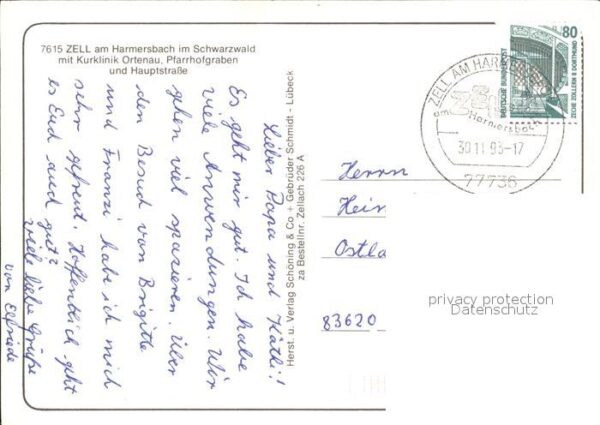 7615 ZELL am Harmersbach im Schwarzwald
mit Kurklinik Ortenau, Pfarrhofgraben
und Hauptstraße
Lieber Papa und Käthi!
Es geht mir gut. Ich habe
viele Anwendungen. Wir
gehen viel spazieren. Über
den Besuch von Brigitte
und Franzi habe ich mich
sehr gefreut. Hoffentlich geht
es Euch auch gut?
viele liebe Grüße
von Elfriede
Herst. u. Verlag Schöning & Co + Gebrüder Schmidt - Lübeck
za Bestellnr. Zellach 226 A
80
DEUTSCHE BUNDESPOST
ZECHE ZOLLERN II DORTMUND
ZELL AM HARMERSBACH
Zell
am Harmersbach
30.11.93-17
77736
Herrn
Hein
Ostla
83620
privacy protection
Datenschutz